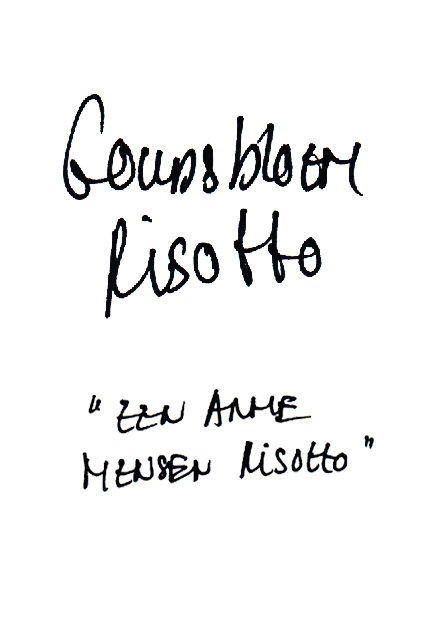 Goudsbloem
Risotto
"EEN ARME
MENSEN RISOTTO"